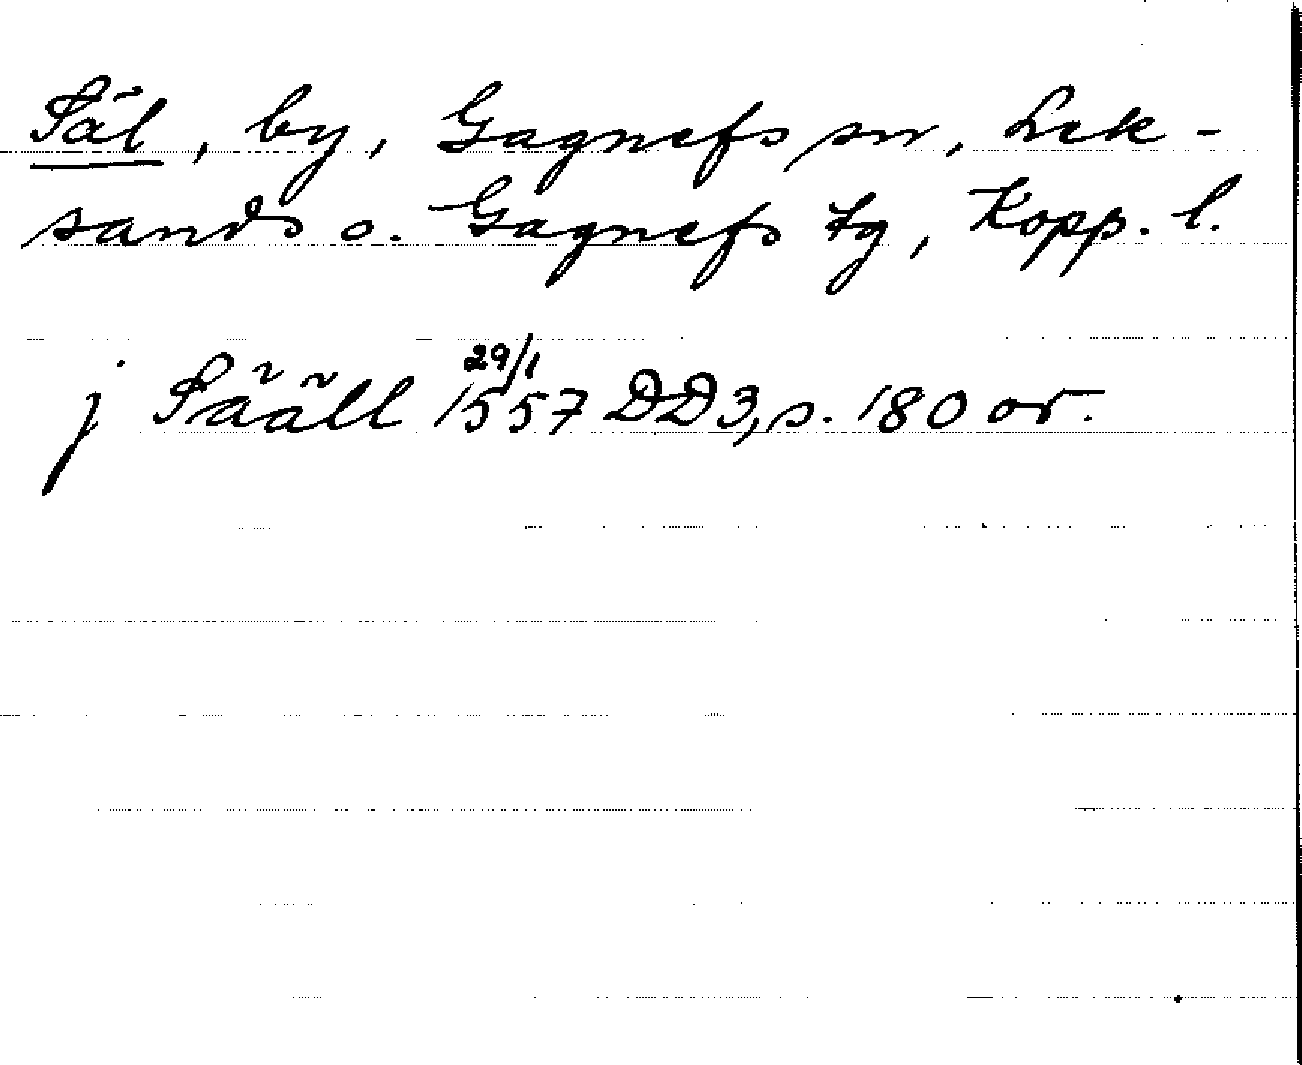 Säl, by, Gagnefs sn, Lek-
sands o. Gagnefs tg, Kopp. l.
j Sääll 29/1 1557 DD3, s. 180 or.